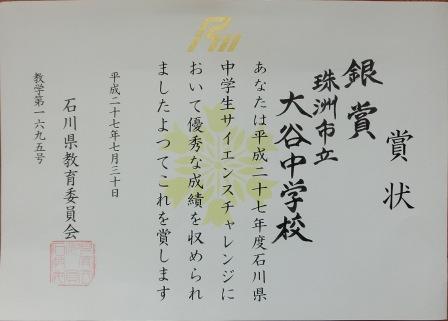 賞状
銀賞
珠洲市立
大谷中学校
あなたは平成二十七年度石川県
中学生サイエンスチャレンジに
おいて優秀な成績を収められ
ましたよつてこれを賞します
平成二十七年七月三十日
石川県教育委員会
教学第一六九五号